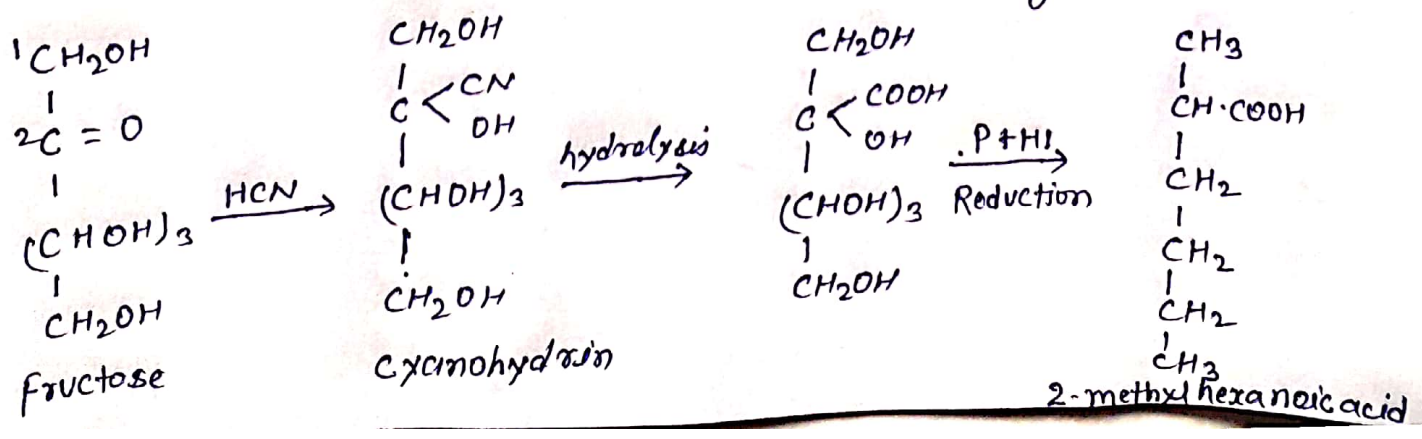 ¹CH2OH
|
2C = O
|
(CHOH)3
|
CH2OH
Fructose
HCN
CH2OH
|
C < CN
OH
|
(CHOH)3
|
CH2OH
Cyanohydrin
hydrolysis
CH2OH
|
C < COOH
OH
|
(CHOH)3
|
CH2OH
P+HI
Reduction
CH3
|
CH·COOH
|
CH2
|
CH2
|
CH2
|
CH3
2-methyl hexanoic acid